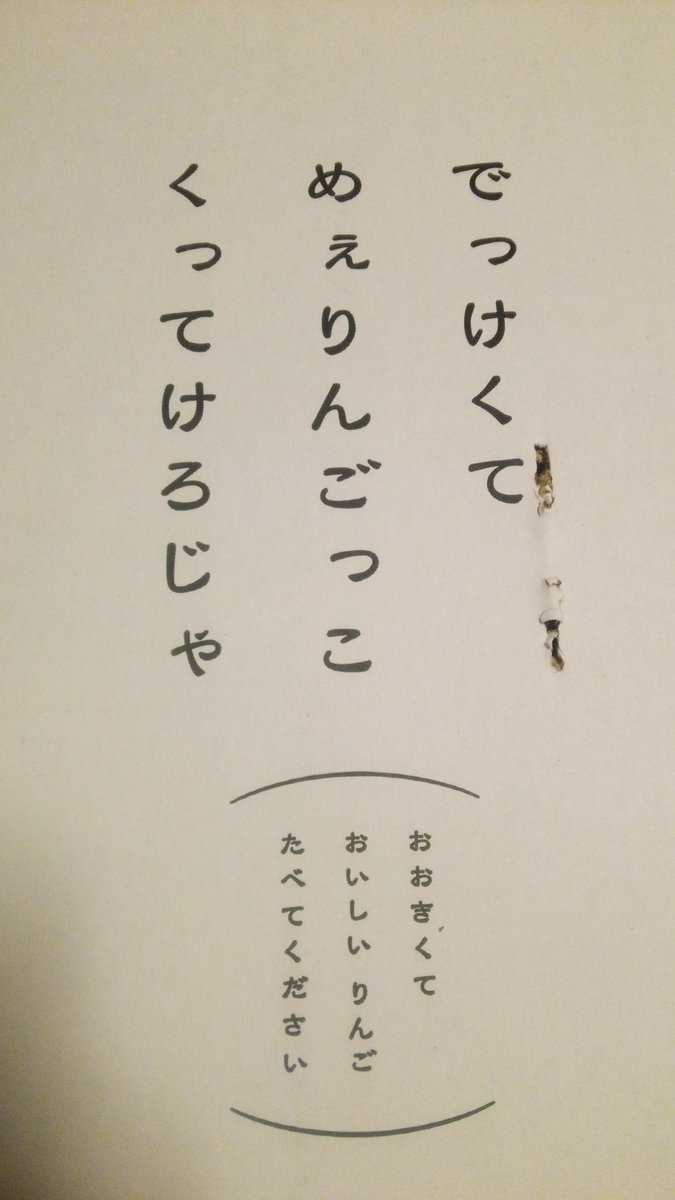 でっけくて
めぇりんごっこ
くってけろじゃ
（おおきくて
おいしい りんご
たべてください）